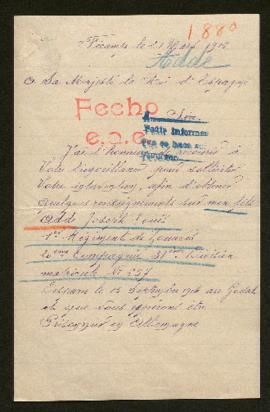 1880
Fécamp le 21
Adde
A Sa Majesté le Roi d'Espagne
Fecho
e.o.e.
Sire,
Pedir informes
que se hace su
J'ai l'honneur de recourir à
Votre bienveillance pour solliciter
Votre intervention, afin d'obtenir
quelques renseignements sur mon fils
Adde Joseph Louis
1er Régiment de Zouaves
20eme Compagnie 31eme Bataillon
matricule No 257
et que nous espérons être
Prisonnier en Allemagne